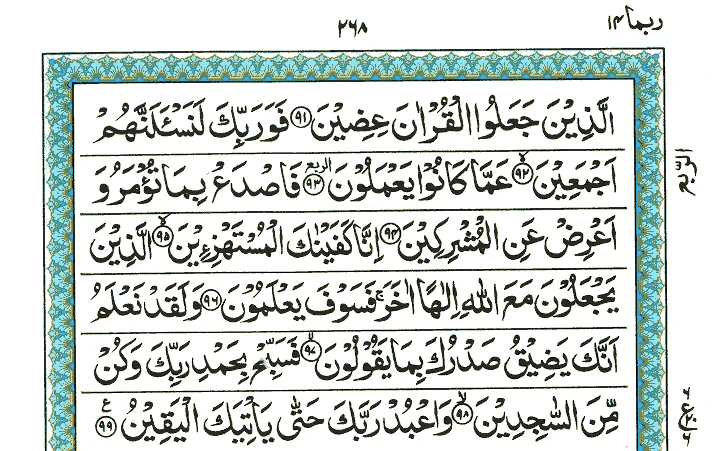 ربما ١٤
٢٦٨
الَّذِيْنَ جَعَلُوا الْقُرْاٰنَ عِضِيْنَ ۝٩١ فَوَرَبِّكَ لَنَسْـَٔلَنَّهُمْ
اَجْمَعِيْنَ ۙ۝٩٢ عَمَّا كَانُوْا يَعْمَلُوْنَ الربع ۝٩٣ فَاصْدَعْ بِمَا تُؤْمَرُ وَ
اَعْرِضْ عَنِ الْمُشْرِكِيْنَ ۝٩٤ اِنَّا كَفَيْنٰكَ الْمُسْتَهْزِءِيْنَ ۙ۝٩٥ الَّذِيْنَ
يَجْعَلُوْنَ مَعَ اللّٰهِ اِلٰهًا اٰخَرَ ۚ فَسَوْفَ يَعْلَمُوْنَ ۝٩٦ وَلَقَدْ نَعْلَمُ
اَنَّكَ يَضِيْقُ صَدْرُكَ بِمَا يَقُوْلُوْنَ ۙ۝٩٧ فَسَبِّحْ بِحَمْدِ رَبِّكَ وَكُنْ
مِّنَ السّٰجِدِيْنَ ۙ۝٩٨ وَاعْبُدْ رَبَّكَ حَتّٰى يَاْتِيَكَ الْيَقِيْنُ ع ۝٩٩
الربع